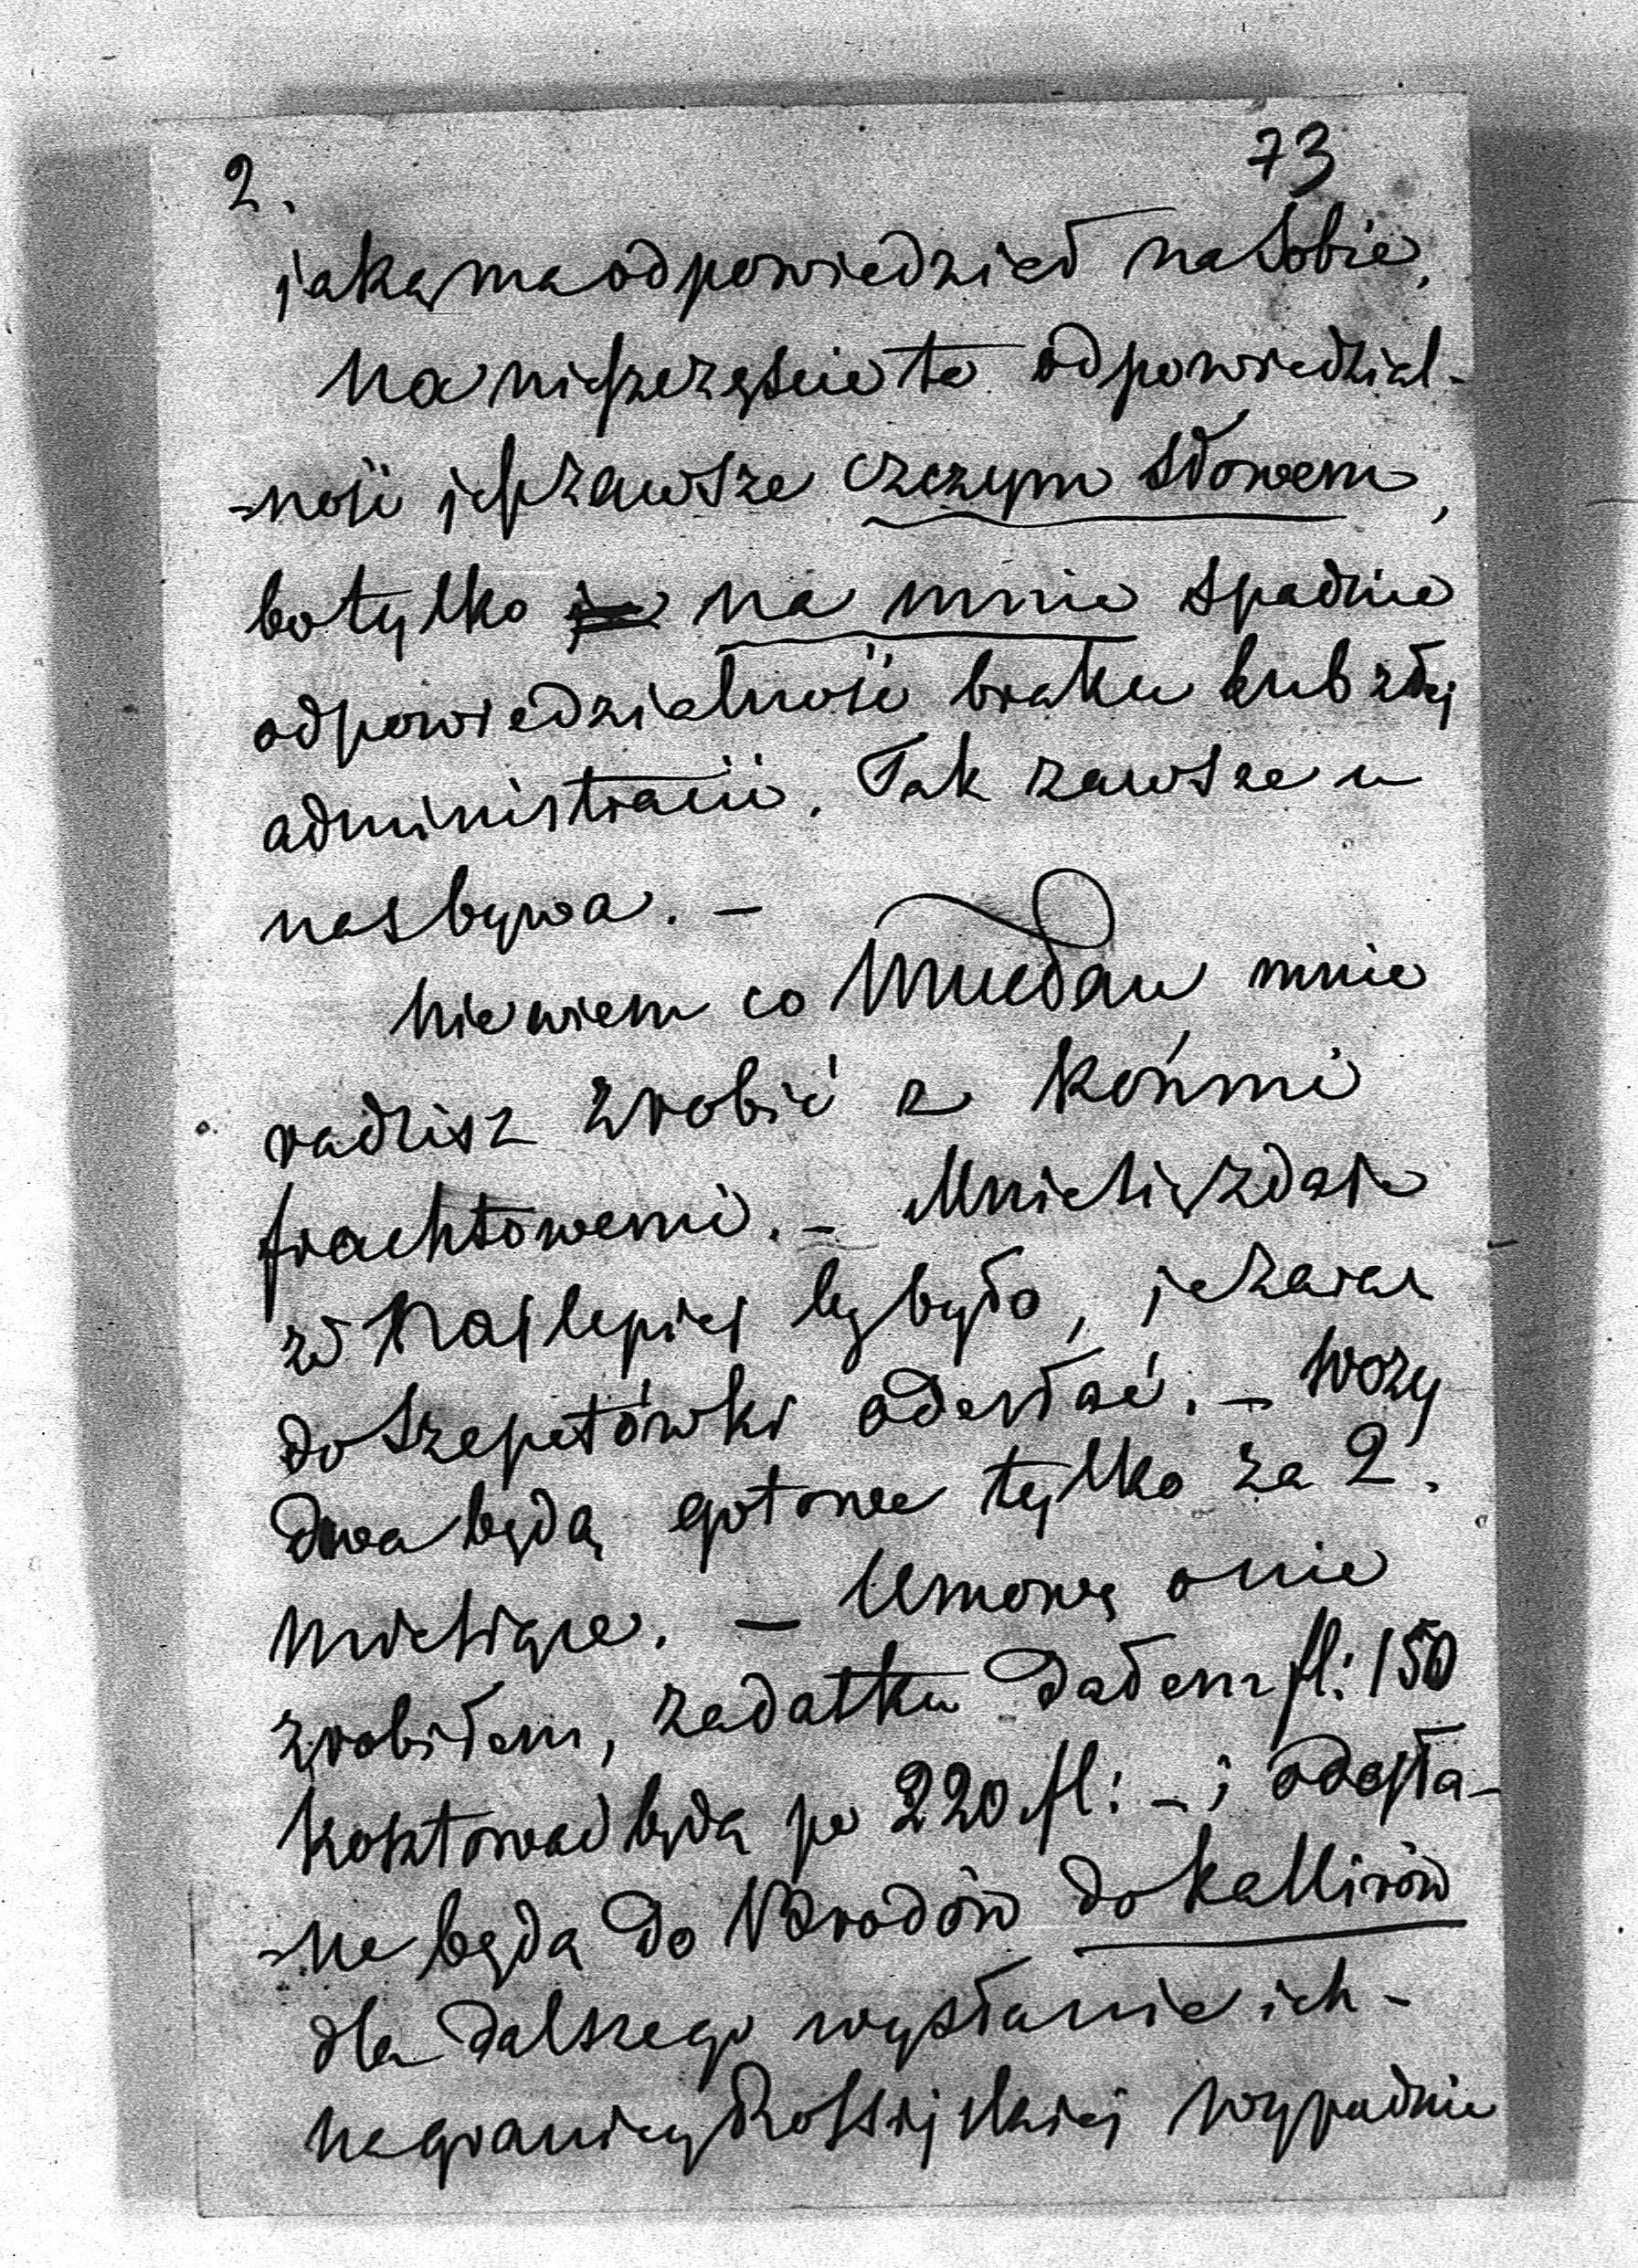 2.
73
jaką ma odpowiedzieć na Sobie.
Na nieszczęście ta odpowiedzial-
-ność jest zawsze czczym słowem,
bo tylko na mnie spadnie
odpowiedzialność braku lub złej
administracii. Tak zawsze u
nas bywa. –
Nie wiem co mnie
radzisz zrobić z Końmi
frachtowemi. – Mnie się zdaje
że Najlepiej by było, je zaraz
do Szepetówki odesłać. – Wozy
dwa będą gotowe tylko za 2.
Miesiące. – Umowę o nie
zrobiłem, zadatku dałem fl: 150
Kosztować będą po 220 fl: – i odesła-
-ne będą do Brodów do Kallirów
dla dalszego wysłania ich –
na granicy Rossijskiej wypadnie